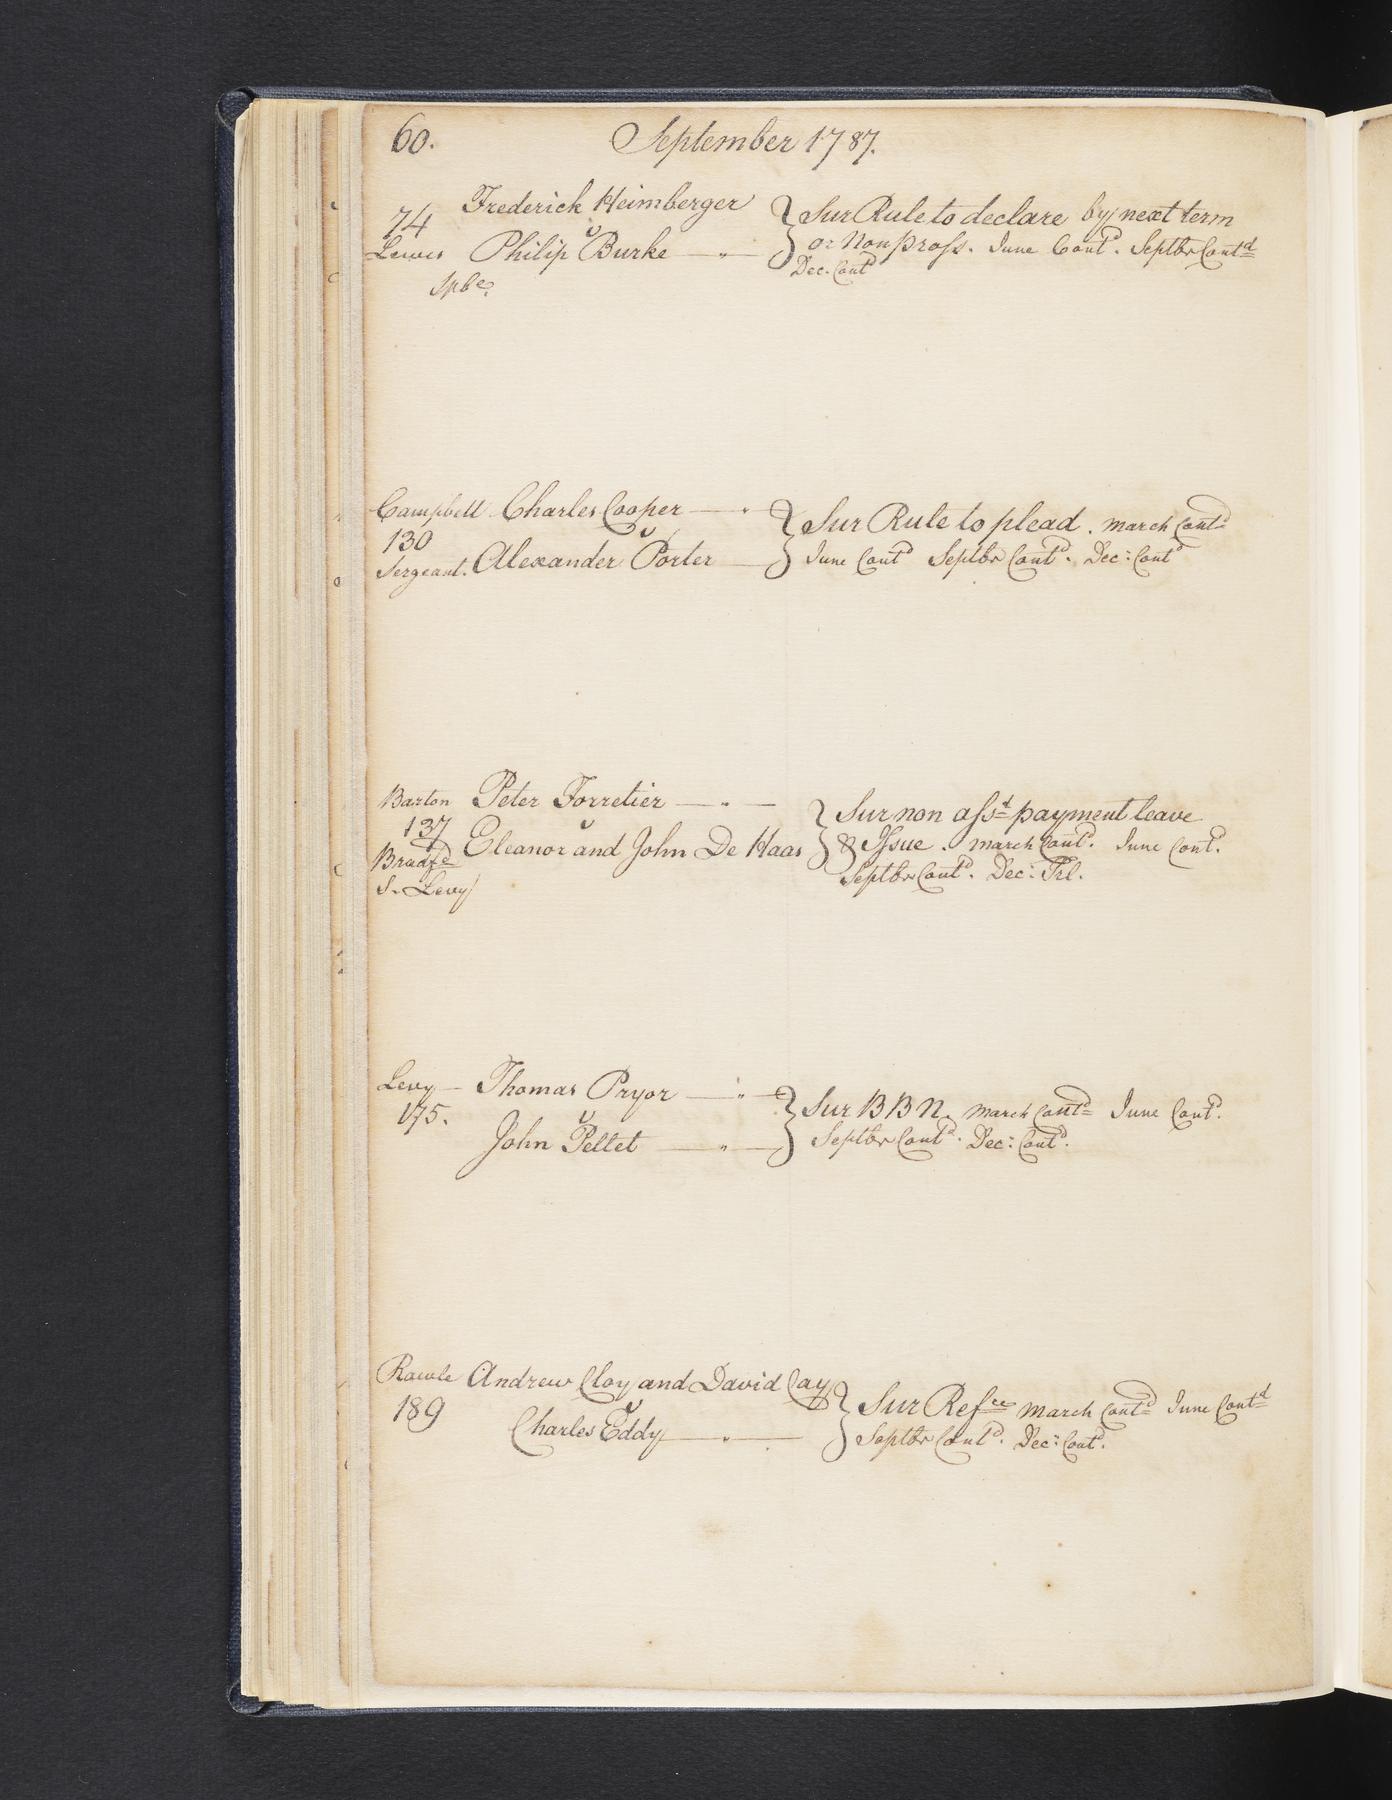 60. September 1787.
Frederick Heimberger
74
v
Lewis Philip Burke
Spbe.
Sur Rule to declare by next term
or Non pross. June Contd. Septbr Contd
Dec. Contd
Campbell Charles Cooper
130
v
Sergeant. Alexander Porter
Sur Rule to plead. March Contd
June Contd Septbr Contd. Dec: Contd
Barton Peter Forretier
137
v
Eleanor and John De Haas
Bradfd
S. Levy
Sur non assd payment leave
& Issue. March Contd. June Contd.
Septbr Contd. Dec: Trl.
Levy Thomas Pryor
175.
v
John Pellet
Sur BBN. March Contd June Contd.
Septbr Contd. Dec: Contd.
Rawle Andrew Cloy and David Cay
189
v
Charles Eddy
Sur Refce March Contd June Contd
Septbr Contd. Dec: Contd.